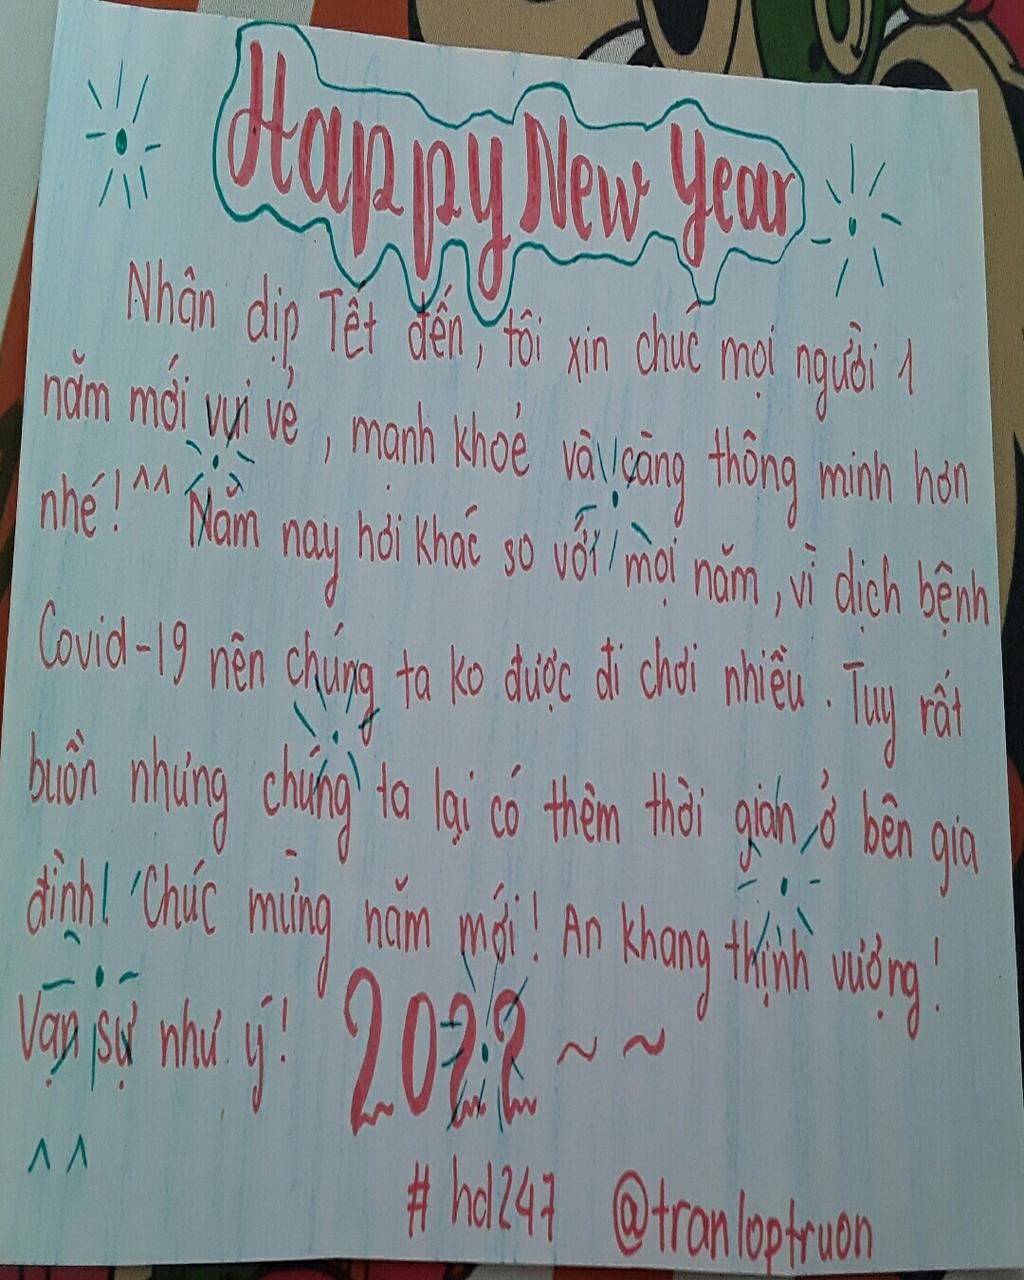 Happy New Year
Nhận dịp Tết đến, tôi xin chúc mọi người 1
năm mới vui vẻ, mạnh khoẻ và càng thông minh hơn
nhé! ^^ Năm nay hơi khác so với mọi năm, vì dịch bệnh
Covid-19 nên chúng ta ko được đi chơi nhiều. Tuy rất
buồn nhưng chúng ta lại có thêm thời gian ở bên gia
đình! Chúc mừng năm mới! An khang thịnh vượng!
Vạn sự như ý! 2022 ~ ~
^ ^
#hd247 @tranloptruon